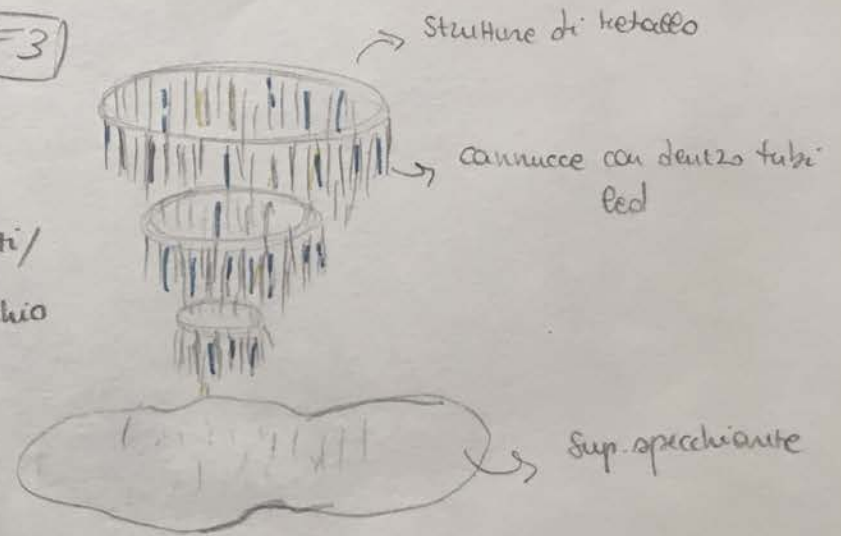 =3
Strutture di metallo
cannucce con dentro tubi
led
ti/
hio
Sup. specchiante